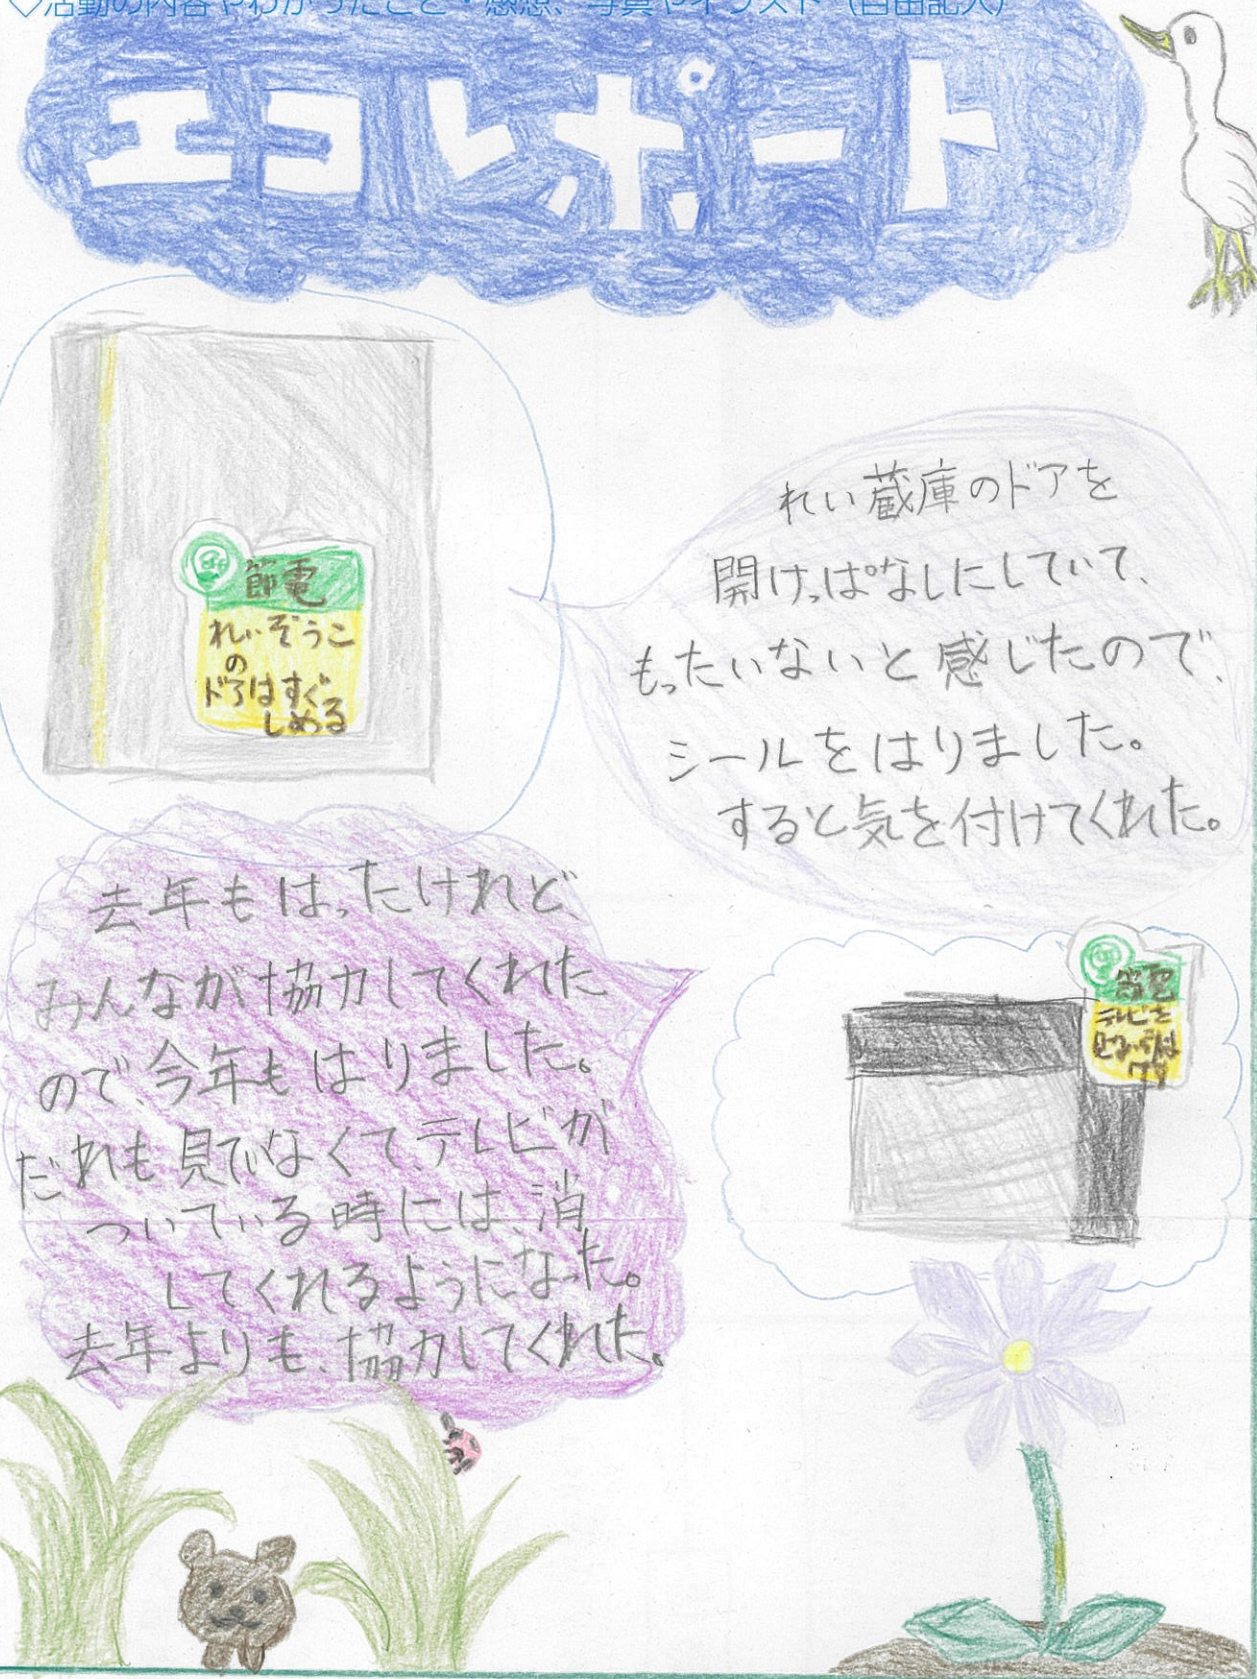 ◇活動の内容やわかったこと・感想、写真やイラスト（自由記入）
エコレポート
節電
れいぞうこ
の
ドアはすぐ
しめる
れい蔵庫のドアを
開けっぱなしにしていて、
もったいないと感じたので、
シールをはりました。
すると気を付けてくれた。
去年もはったけれど、
みんなが協力してくれた
ので、今年もはりました。
だれも見てなくて、テレビが
ついている時には、消
してくれるようになった。
去年よりも、協力してくれた。
節電
テレビを